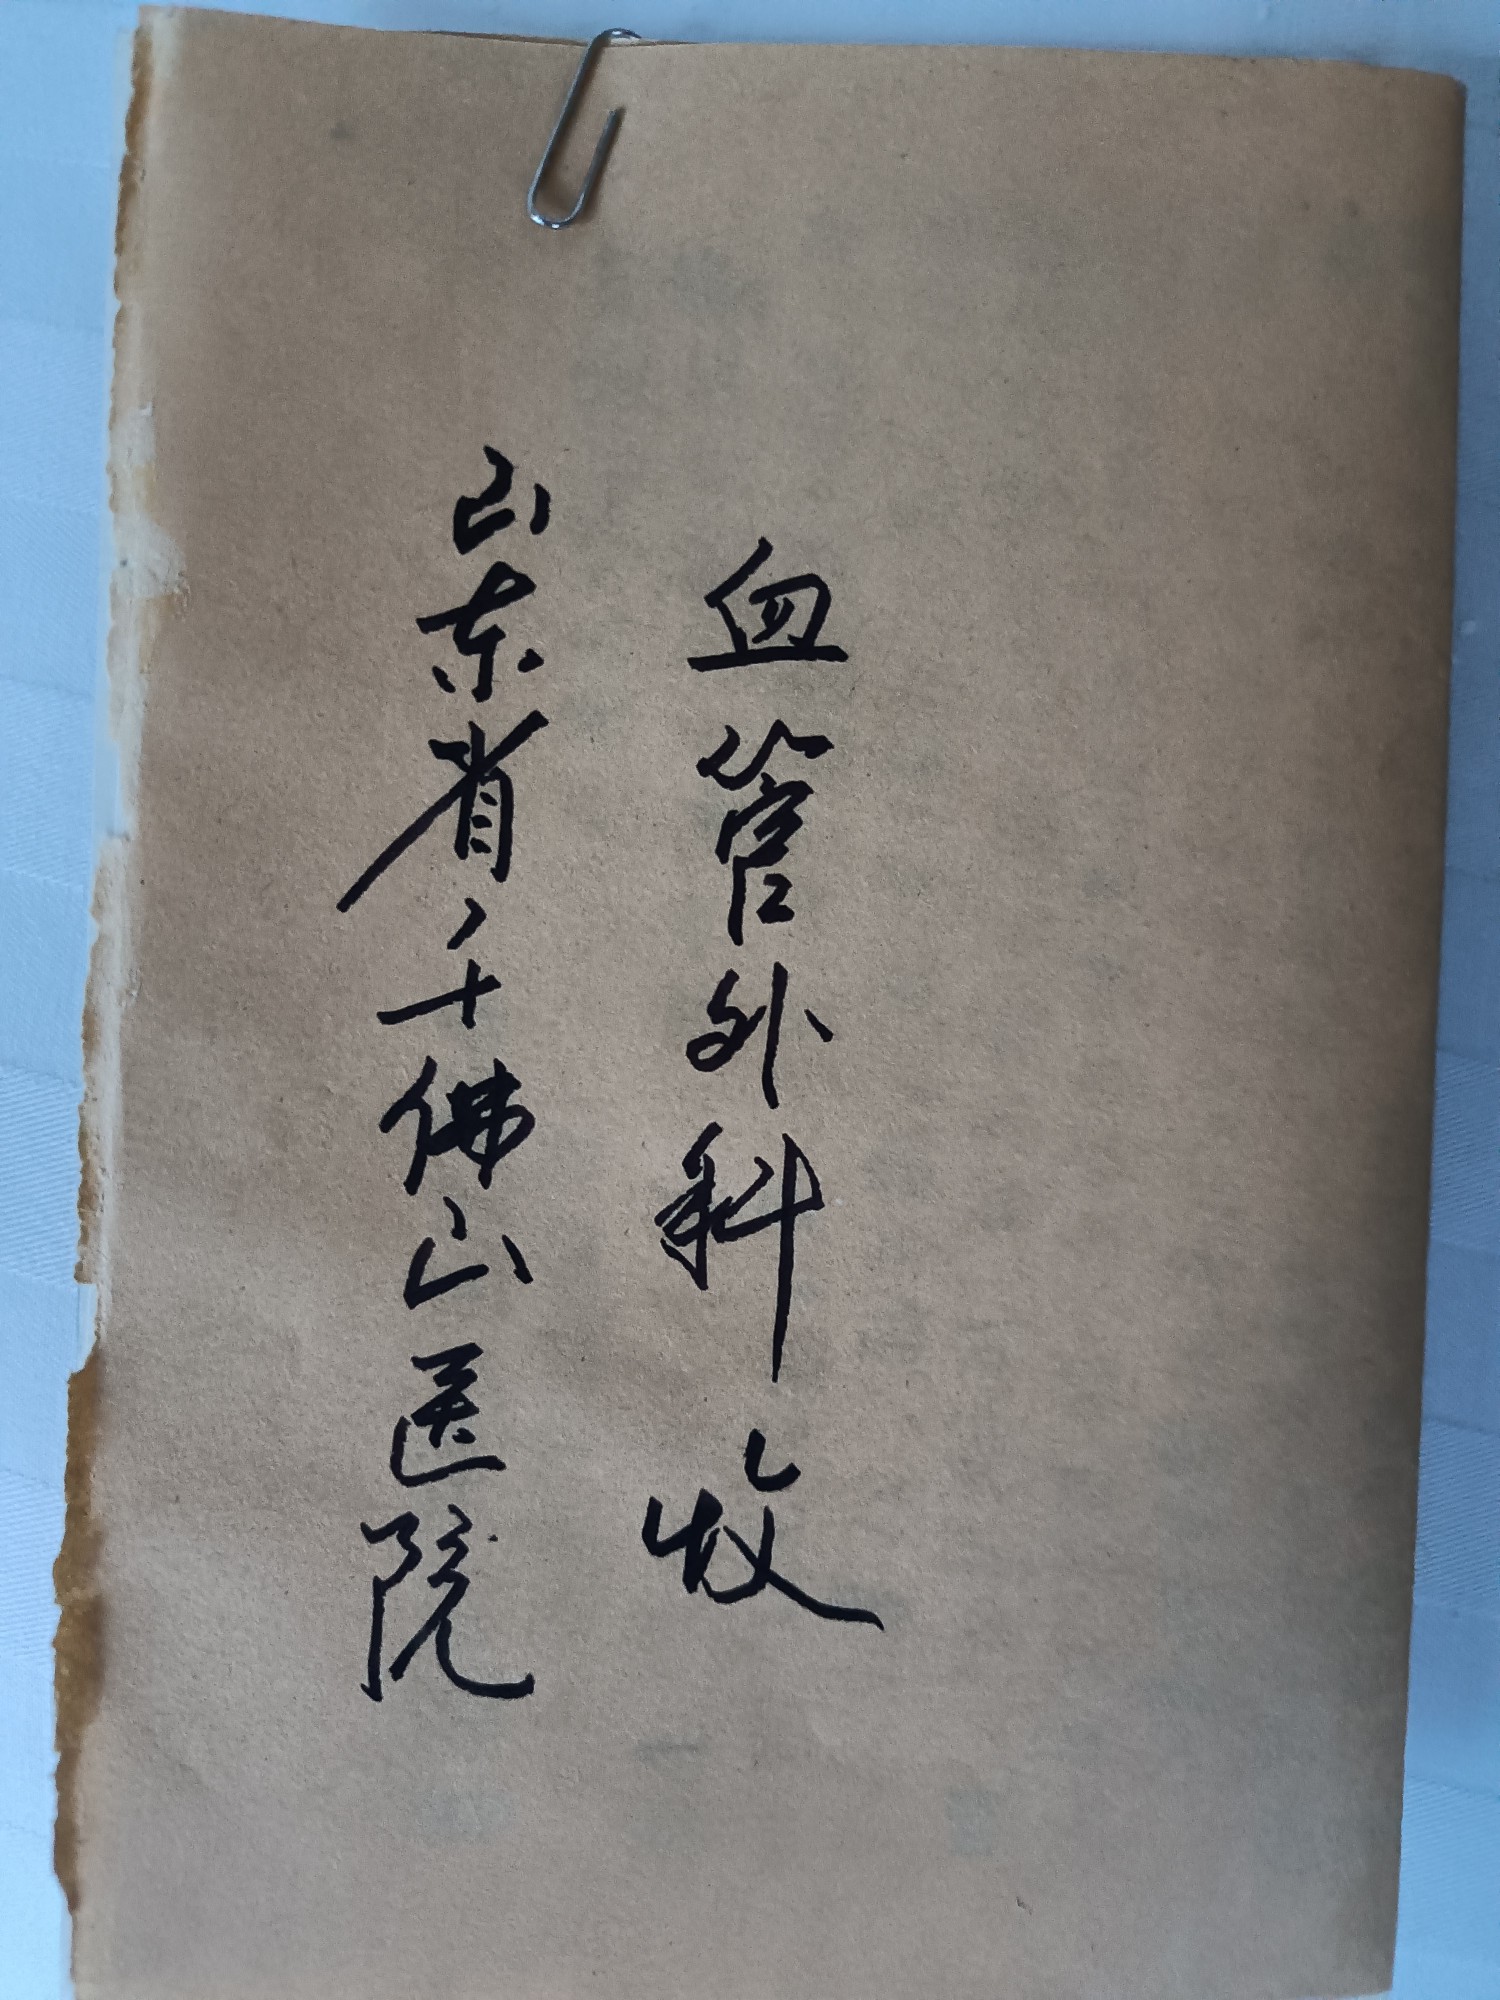 山东省千佛山医院
血管外科收